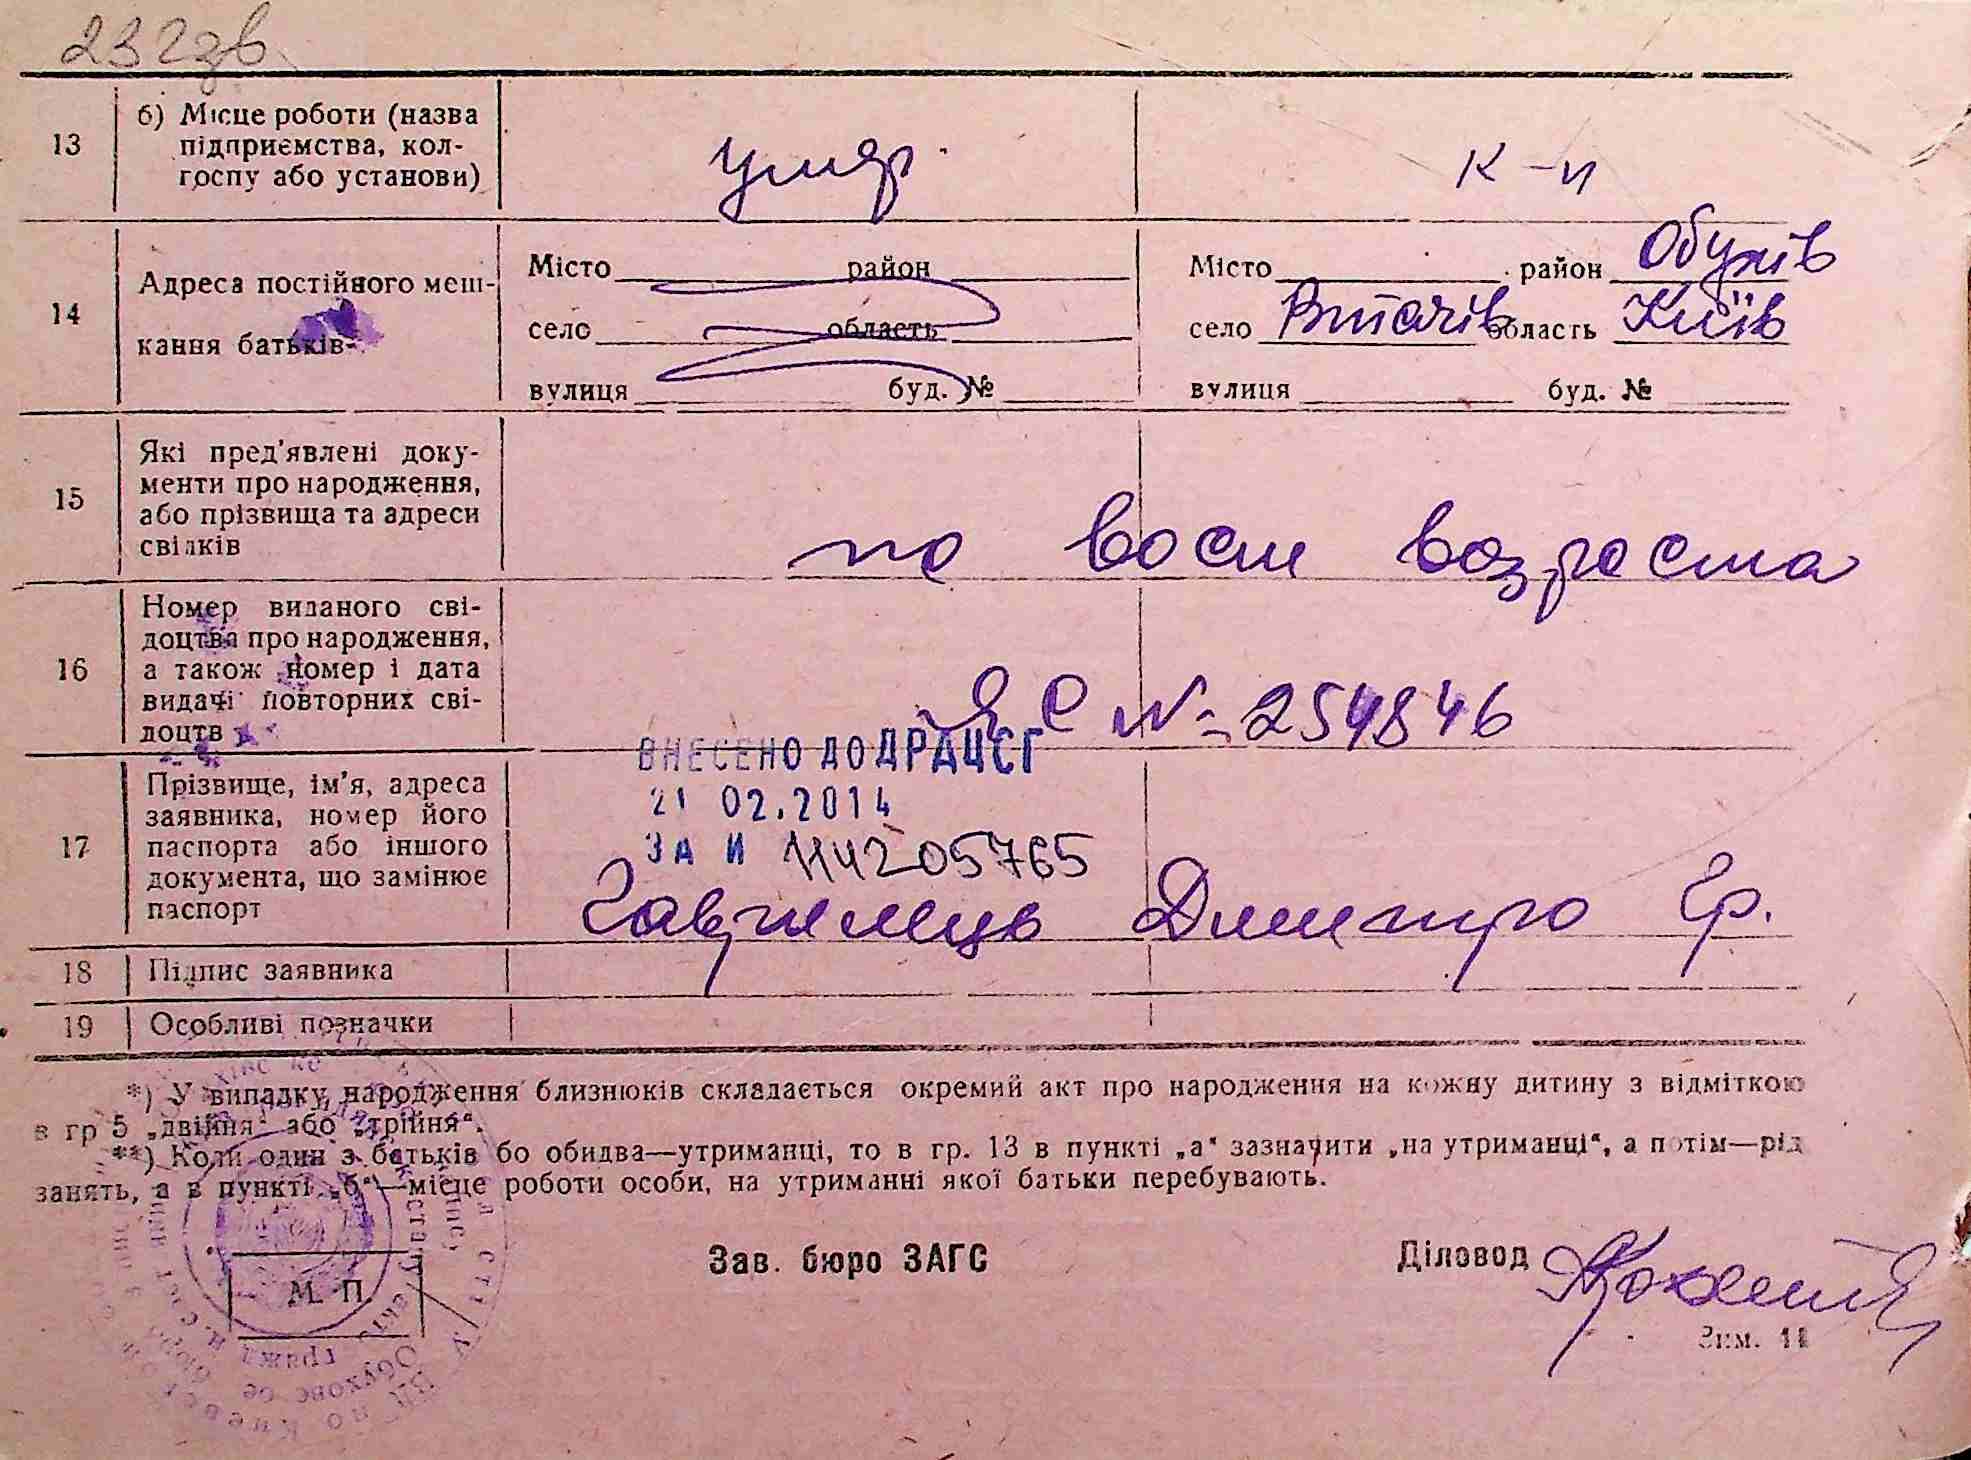 232зв
13
б) Місце роботи (назва
підприємства, кол-
госпу або установи)
умер.
к-п
14
Адреса постійного меш-
кання батьків-
Місто район
село область
вулиця буд. №
Місто район Обухів
село Витачів область Київ
вулиця буд. №
15
Які пред'явлені доку-
менти про народження,
або прізвища та адреси
свідків
по восп возроста
16
Номер виданого сві-
доцтва про народження,
а також номер і дата
видачі повторних сві-
доцтв
ЯС № 254846
ВНЕСЕНО ДО ДРАЦСГ
21 02.2014
ЗА И 114205765
17
Прізвище, ім'я, адреса
заявника, номер його
паспорта або іншого
документа, що замінює
паспорт
Гаврилець Дмитро Гр.
18
Підпис заявника
19
Особливі позначки
*) У випадку народження близнюків складається окремий акт про народження на кожну дитину з відміткою
в гр 5 „двійня" або „трійня".
**) Коли один з батьків бо обидва—утриманці, то в гр. 13 в пункті „а" зазначити „на утриманці", а потім—рід
занять, а в пункті „б"—місце роботи особи, на утриманні якої батьки перебувають.
М. П.
Зав. бюро ЗАГС
Діловод
Зим. 11